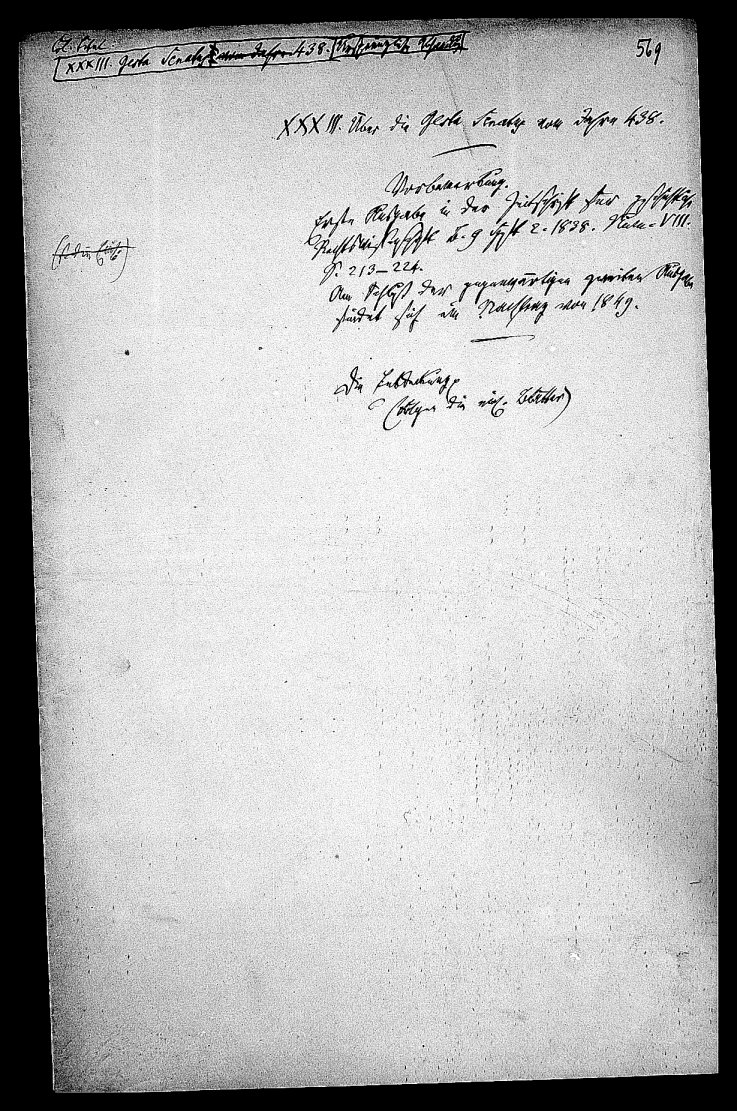 Col. Titel
XXXIII. Gesta Senatus vom Jahre 438.
569
XXXIII. Über die Gesta Senatus vom Jahre 438.
Vorbemerkung.
Erste Ausgabe in der Zeitschrift für geschichtliche
Rechtswissenschaft B. 9 Heft 2. 1838. Num. VIII.
S. 213–224.
Am Schluß der gegenwärtigen zweiten Ausgabe
findet sich ein Nachtrag von 1849.
Die Entdeckung
(Folgen die Blätter)